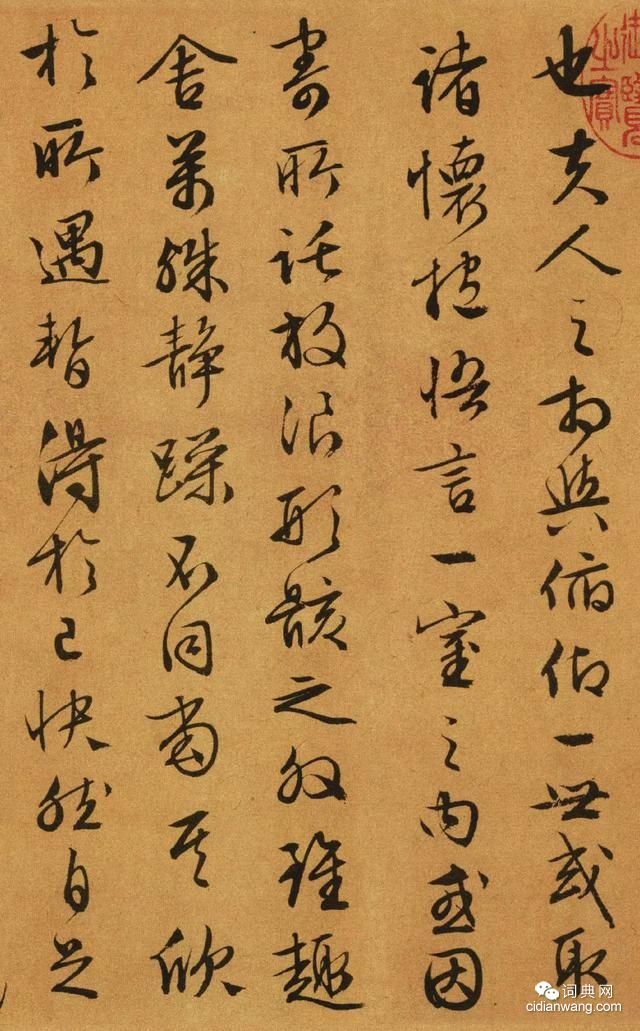 御覽
之寶
也夫人之相與俯仰一世或取
諸懷抱悟言一室之內或因
寄所託放浪形骸之外雖趣
舍萬殊靜躁不同當其欣
於所遇暫得於己快然自足
词典网
cidianwang.com